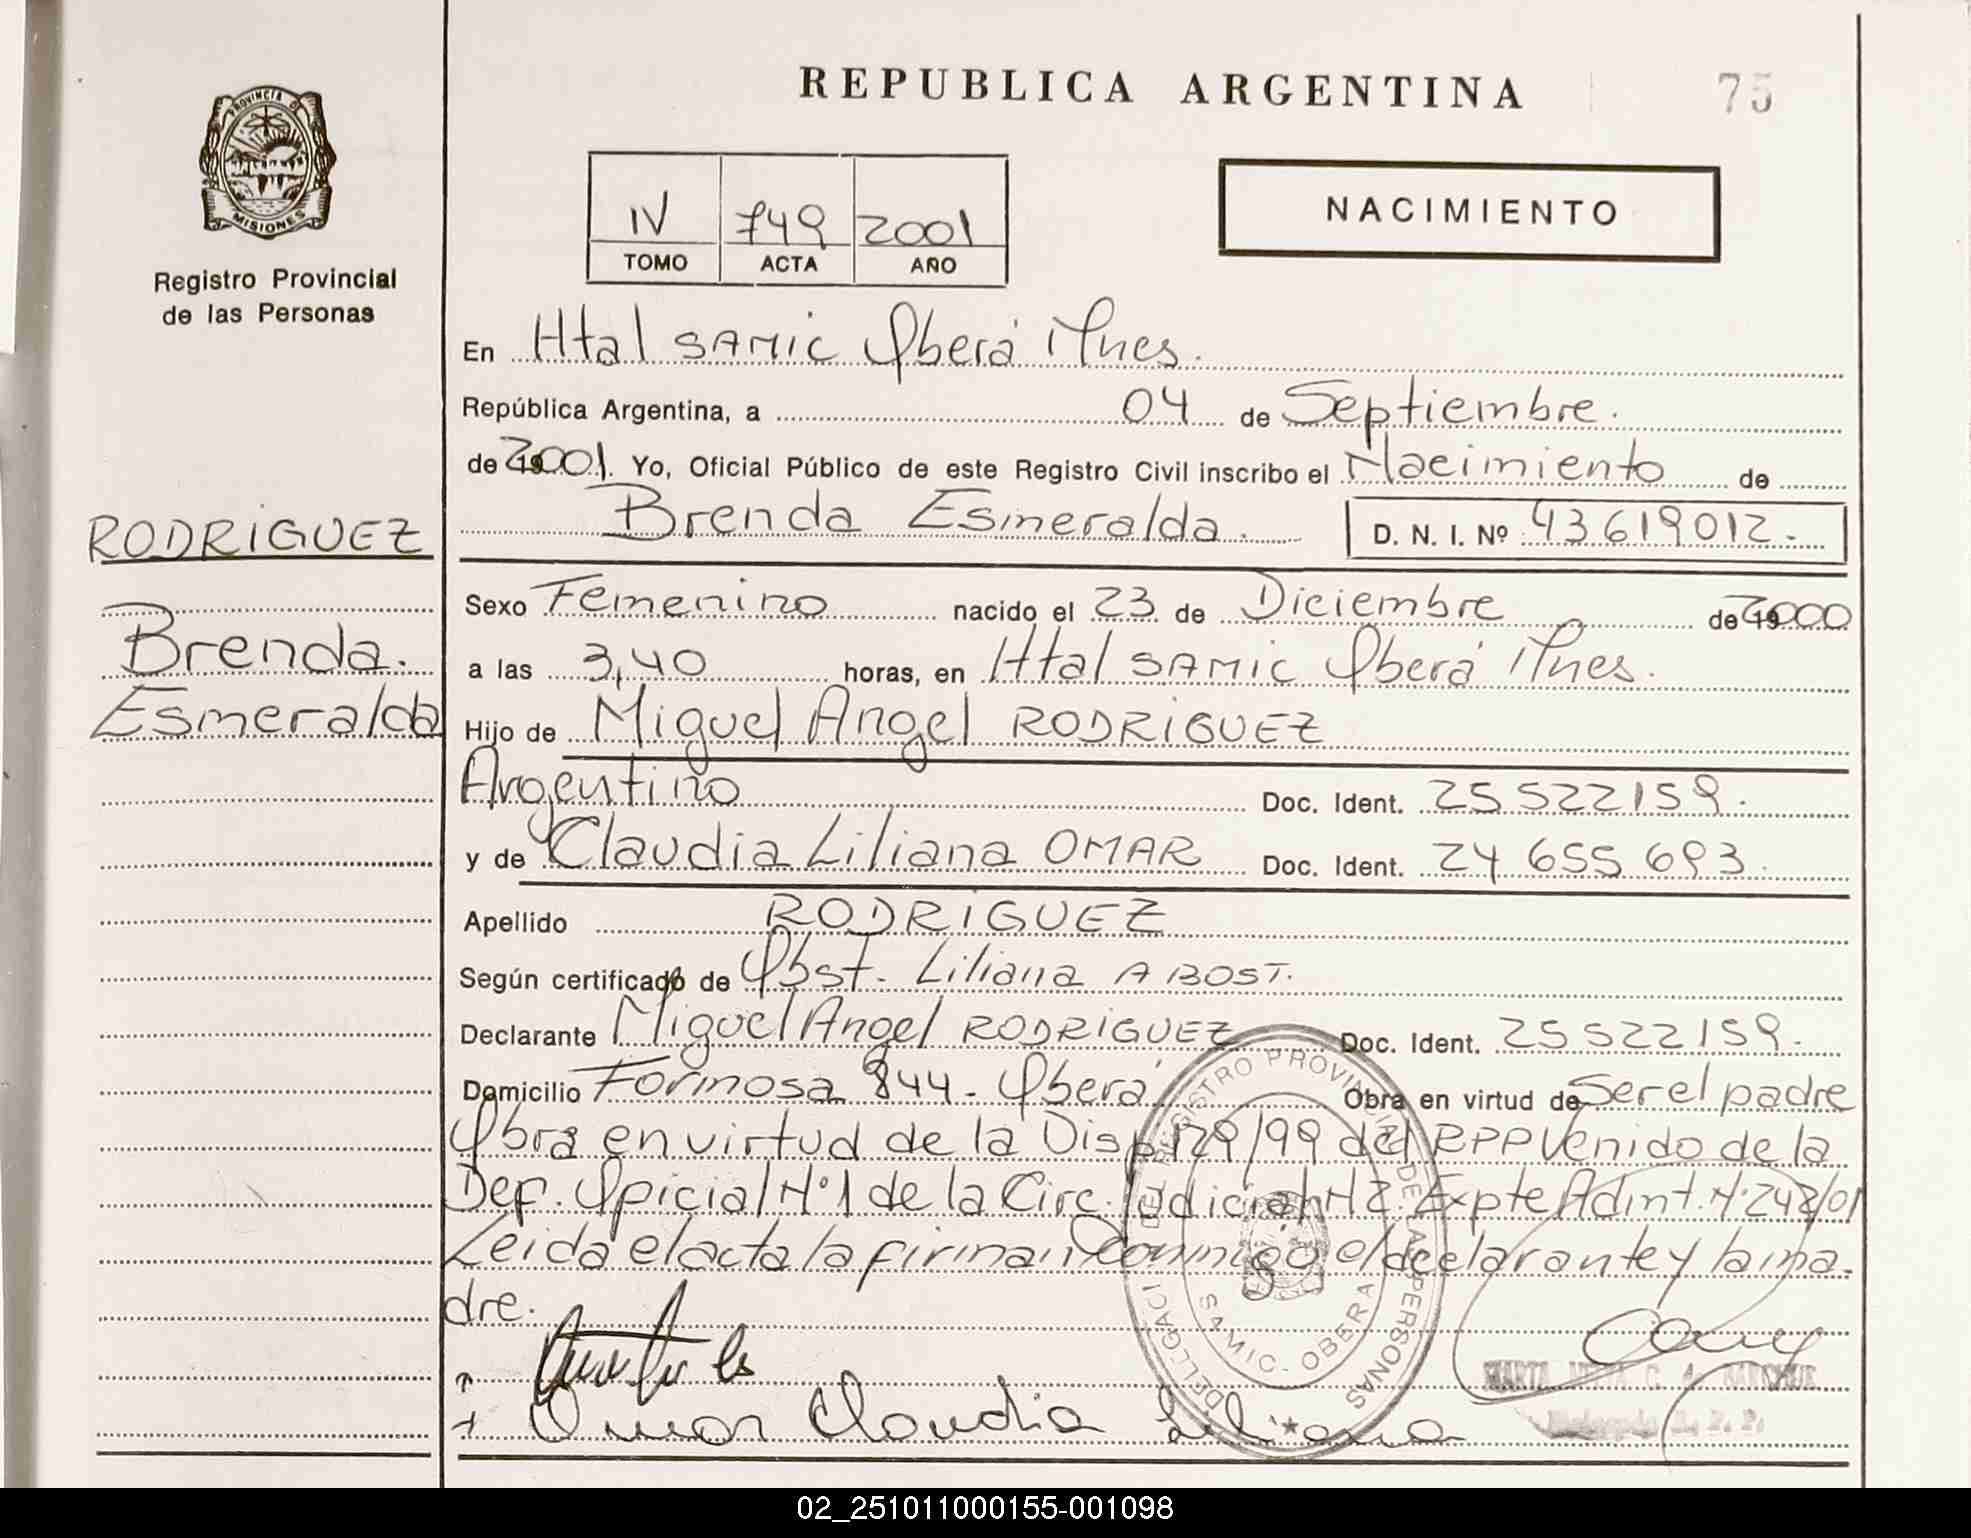 REPUBLICA ARGENTINA
75
PROVINCIA DE
MISIONES
Registro Provincial
de las Personas
IV 749 2001
TOMO ACTA AÑO
NACIMIENTO
En Htal SAMIC Oberá Mnes.
República Argentina, a 04 de Septiembre.
de 2001. Yo, Oficial Público de este Registro Civil inscribo el Nacimiento de
Brenda Esmeralda. D. N. I. Nº 43619012.-
RODRIGUEZ
Brenda.
Esmeralda
Sexo Femenino nacido el 23 de Diciembre de 2000
a las 3,40 horas, en Htal SAMIC Oberá Mnes.
Hijo de Miguel Angel RODRIGUEZ
Argentino Doc. Ident. 25 522 159.
y de Claudia Liliana OMAR Doc. Ident. 24 655 693.
Apellido RODRIGUEZ
Según certificado de Obst. Liliana ABOST.
Declarante Miguel Angel RODRIGUEZ Doc. Ident. 25 522 159.
Domicilio Formosa 844- Oberá Obra en virtud de Ser el padre
Obra en virtud de la Disp 129/99 del RPP Venido de la
Def. Oficial Nº1 de la Circ. Judicial N2. Expte Admt. Nº 242/01
Leida el acta la firman conmigo el declarante y la ma-
dre.
Omar Claudia Liliana
REGISTRO PROVINCIAL DE LAS PERSONAS
SAMIC - OBERA
02_251011000155-001098